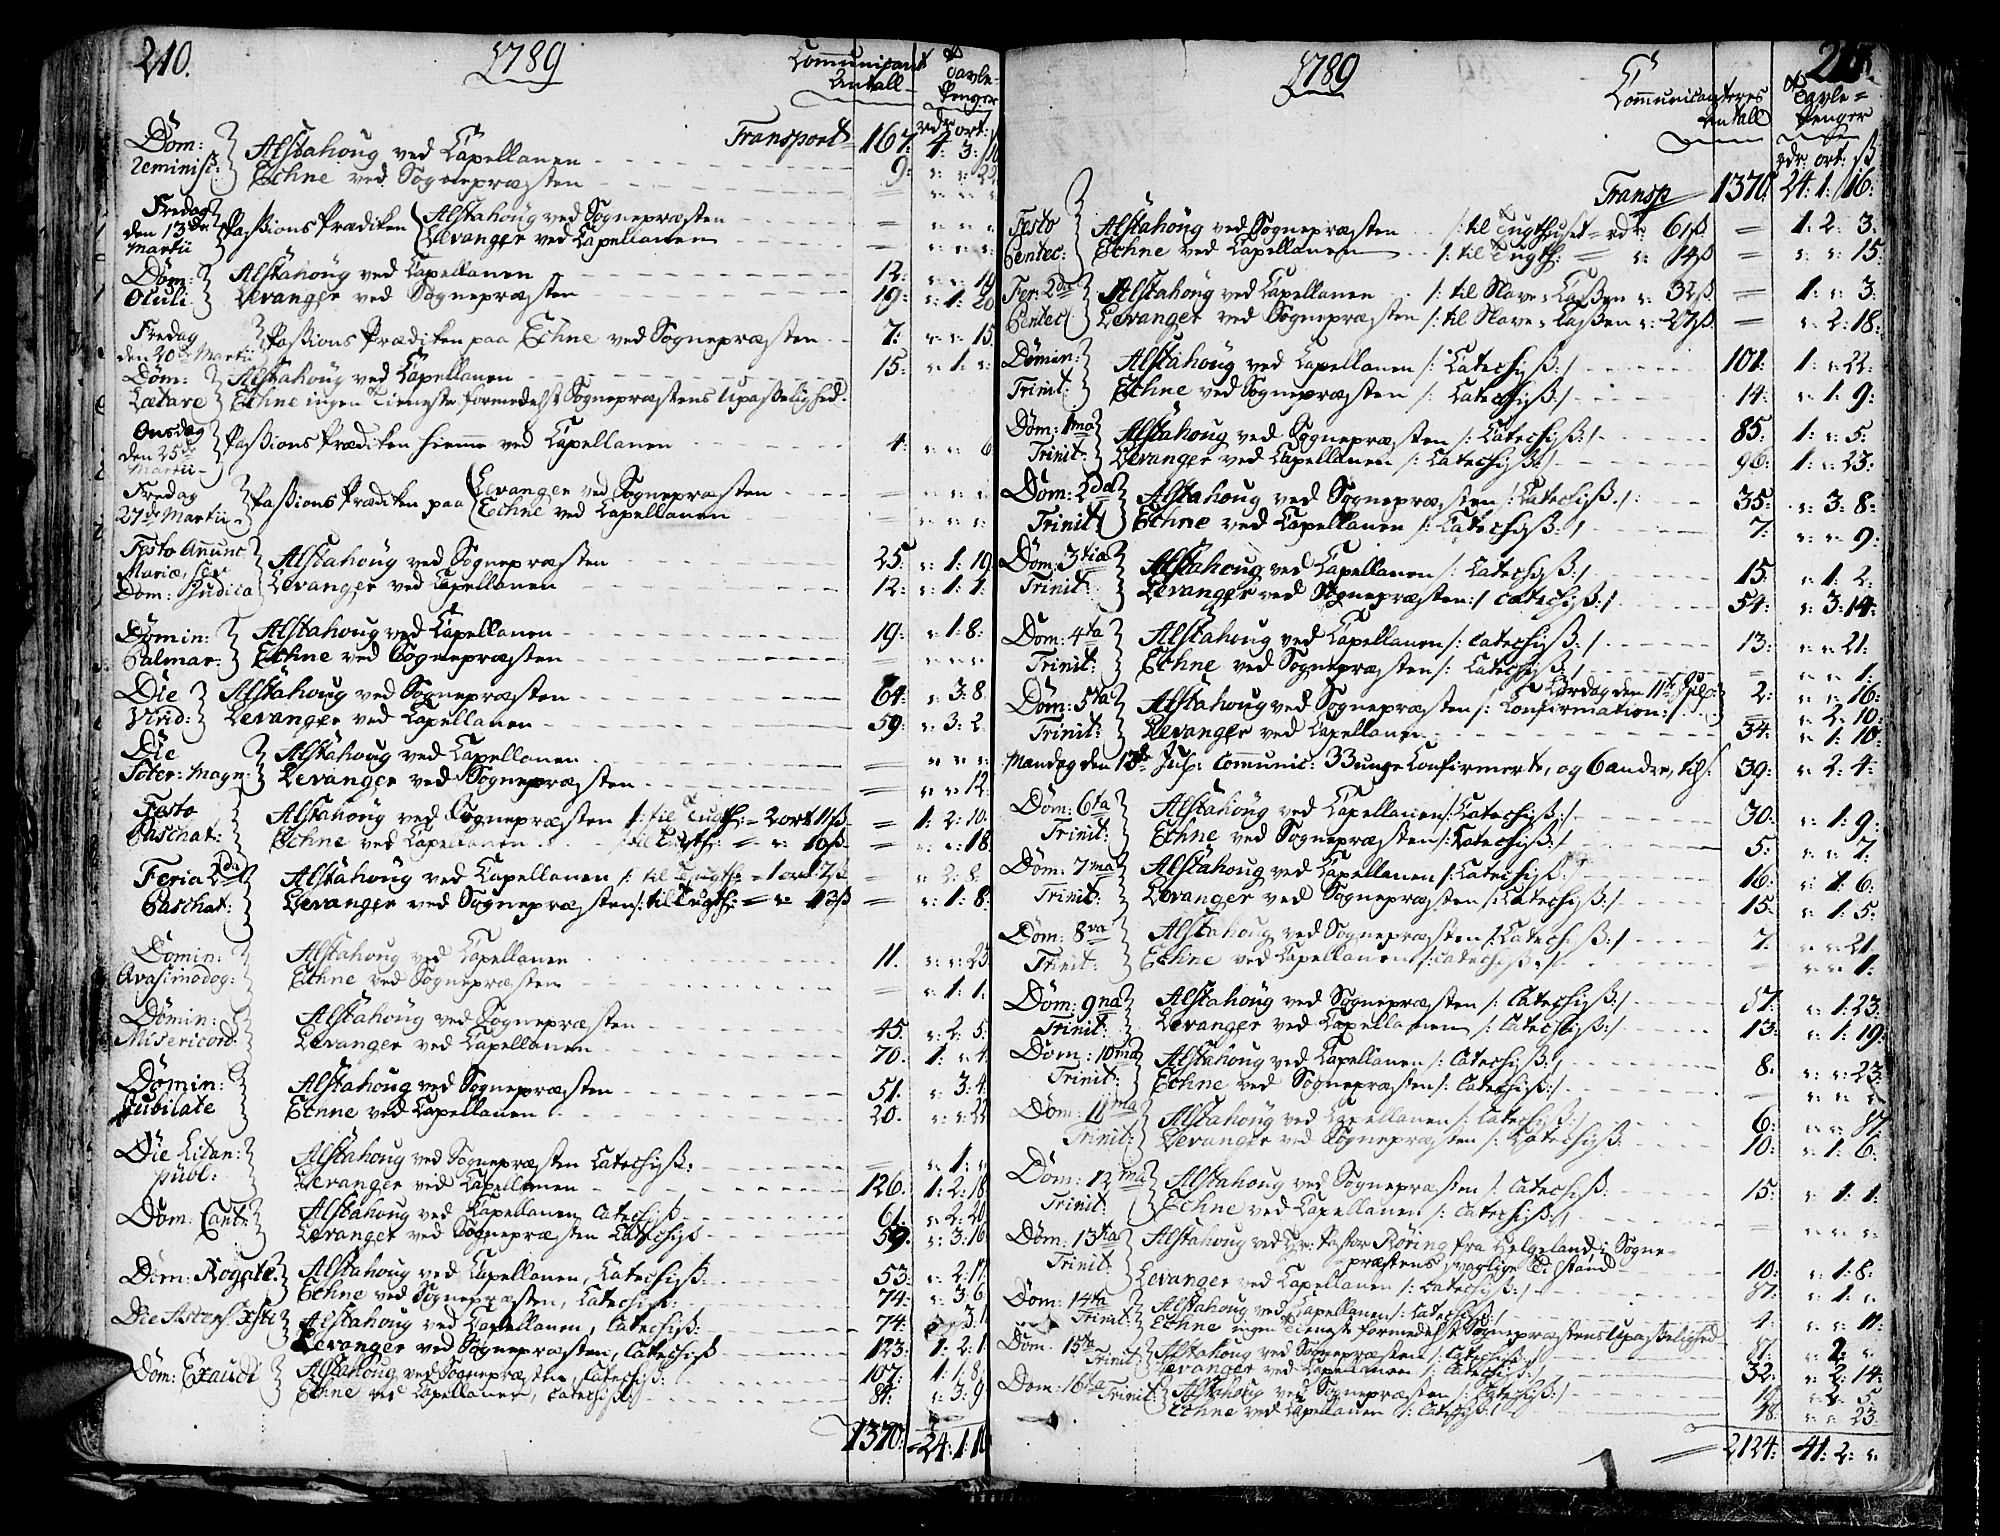 210.
1789
Communicant Antall
Tavle-Penger
rdr ort: ß
Transport 167: 4: 3: 10
Dom: Reminisc: } Alstahoug ved Capellanen 9: " " 22
Echne ved Sognepræsten = " " "
Fredag den 13de Martii } Passions Prædiken { Alstahoug ved Sognepræsten = " " "
Levanger ved Capellanen = " " "
Dom: Oculi } Alstahoug ved Capellanen 12: " " 19
Levanger ved Sognepræsten 19: " 1: 20
Fredag den 20de Martii } Passions Prædiken paa Echne ved Sognepræsten 7: " " 15
Dom: Lætare } Alstahoug ved Capellanen 15: " 1: "
Echne ingen Tieneste formedelst Sognepræstens Upasselighed.
Onsdag den 25de Martii } Passions Prædiken hiemme ved Capellanen 4: " " 6
Fredag 27de Martii } Passions Prædiken paa { Levanger ved Sognepræsten = " " "
Echne ved Capellanen " " "
Festo Anunc Mariæ, sev Dom: Judica } Alstahoug ved Sognepræsten 25: " 1: 19
Levanger ved Capellanen 12: " 1: 1:
Domin: Palmar: } Alstahoug ved Capellanen 19: " 1: 8:
Echne ved Sognepræsten = " " "
Die Virid: } Alstahoug ved Sognepræsten 64: " 3: 8
Levanger ved Capellanen 59: " 3: 2
Die Soter: Magn: } Alstahoug ved Capellanen = " " "
Levanger ved Sognepræsten = " " 12
Festo Paschat: } Alstahoug ved Sognepræsten /: til Tugth: = 2 ort 11ß = 1: 2: 10
Echne ved Capellanen /: til Tugth: = " 10ß = " " 18
Feria 2da Paschat: } Alstahoug ved Capellanen /: til Tugth: = 1 ort 7ß = " 2: 8:
Levanger ved Sognepræsten /: til Tugth: = " 13ß = " 1: 8:
Domin: Qvasimodog: } Alstahoug ved Capellanen 11. " " 23
Echne ved Sognepræsten = " 1: 1:
Domin: Misericord: } Alstahoug ved Sognepræsten 45. " 2: 5:
Levanger ved Capellanen 70. 1: " 4.
Domin: Jubilate } Alstahoug ved Sognepræsten 51. " 3: 4.
Echne ved Capellanen 20. " " 22
Die Litan: publ: } Alstahoug ved Sognepræsten Catechiss: = " 1: "
Levanger ved Capellanen 126: 1: 2: 18
Dom: Cant: } Alstahoug ved Capellanen Catechiss 61. " 2: 20
Levanger ved Sognepræsten Catechiss 59. " 3: 16
Dom: Rogate. } Alstahoug ved Capellanen, Catechiss: 53: " 2: 17
Echne ved Sognepræsten, Catechiss: 74: " 3: 6
Die Ascens: Xsti } Alstahoug ved Capellanen, Catechiss: 74: " 3: 1
Levanger ved Sognepræsten, Catechiss 123: 1: 2: 1
Dom: Exaudi } Alstahoug ved Sognepræsten, Catechiss: 107: 1: 1: 8
Echne ved Capellanen, Catechiss: 84: " 3: 9
1370: 24: 1: 16
1789
Communicanteres Antall
Tavle=Penger
rdr: ort: ß
Transp 1370: 24: 1: 16:
Festo Pentec: } Alstahoug ved Sognepræsten /: til Tugthuset = rdr: 61ß = 1: 2: 3:
Echne ved Capellanen /: til Tugth: = " 14ß = " " 15:
Fer: 2da Pentec } Alstahoug ved Capellanen /: til Slave-Cassen " 32ß = 1: " 3:
Levanger ved Sognepræsten /: til Slave-Cassen " 27ß = " 2: 18:
Domin: Trinit: } Alstahoug ved Capellanen /: Catechiss:/ 101: 1: " 22:
Echne ved Sognepræsten /: Catechiss:/ 14: " 1: 9:
Dom: 1ma Trinit: } Alstahoug ved Sognepræsten /: Catechiss:/ 85: 1: " 5:
Levanger ved Capellanen /: Catechiss:/ 96: 1: " 23:
Dom: 2da Trinit } Alstahoug ved Sognepræsten /: Catechiss:/: 35: " 3: 8:
Echne ved Capellanen /: Catechiss:/ 7: " " 9:
Dom: 3tia Trinit: } Alstahoug ved Capellanen /: Catechiss:/ 15: " 1: 2:
Levanger ved Sognepræsten:/ Catechiss:/ 54: " 3: 14:
Dom: 4ta Trinit: } Alstahoug ved Capellanen /: Catechiss:/ 13: " " 21:
Echne ved Sognepræsten /: Catechiss:/ " " 1:
Dom: 5ta Trinit: } Alstahoug ved Sognepræsten /: Confirmation:/ Lørdag den 11te Jul: 2: " " 16:
= " 2: 10:
Levanger ved Capellanen 34: " 1: 10:
Mandag den 13de Jul: Communic: 33 unge Confirmerte, og 6 andre, tils: 39: " 2: 4:
Dom: 6ta Trinit: } Alstahoug ved Capellanen /: Catechiss:/ 30: " 1: 9:
Echne ved Sognepræsten /: Catechiss:/ 5: " " 7:
Dom: 7ma Trinit: } Alstahoug ved Capellanen /: Catechiss:/ 16: " 1: 6:
Levanger ved Sognepræsten /: Catechiss:/ 15: " 1: 5:
Dom: 8va Trinit: } Alstahoug ved Sognepræsten /: Catechiss:/ 7: " " 21.
Echne ved Capellanen /: Catechiss:/ = " " 1:
Dom: 9na Trinit: } Alstahoug ved Sognepræsten /: Catechiss:/ " 1: 23:
Levanger ved Capellanen /: Catechiss:/ 13: " 1: 19:
Dom: 10ma Trinit: } Alstahoug ved Capellanen /: Catechiss:/ 8. " " 23:
Echne ved Sognepræsten /: Catechiss:/ " " "
Dom: 11ma Trinit: } Alstahoug ved Capellanen /: Catechiss:/ 6: " "
Levanger ved Sognepræsten /: Catechiss: 10: " 1: 6:
Dom: 12ma Trinit: } Alstahoug ved Sognepræsten /: Catechiss: 15: " 1: 1:
Echne ved Capellanen /: Catechiss:/ = " " "
Dom: 13tia Trinit: } Alstahoug ved Hr: Pastor Röring fra Helgeland i Sogne-
præstens svaglige Tilstand 10: " 1: 8:
Levanger ved Capellanen /: Catechiss:/ " 1: "
Dom: 14ta Trinit: } Alstahoug ved Capellanen /: Catechiss:/ 1: " " 11.
Echne ingen Tieneste formedelst Sognepræstens Upasselighed
Dom. 15ta Trinit } Alstahoug ved Sognepræsten /: Catechiss:/ " 2: "
Levanger ved Capellanen /: Catechiss:/ 32: " 2: 14:
Dom: 16ta Trinit: } Alstahoug ved Sognepræsten /: Catechiss:/ 5:
Echne ved Capellanen /: Catechiss:/ 18: " " 23:
2124: 41: 2: "